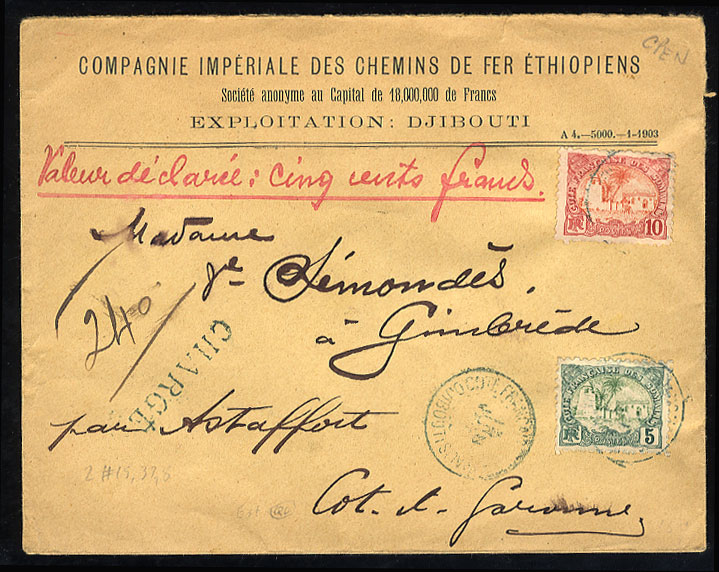 CPEN
COMPAGNIE IMPÉRIALE DES CHEMINS DE FER ÉTHIOPIENS
Société anonyme au Capital de 18,000,000 de Francs
EXPLOITATION: DJIBOUTI
A 4.—5000.-1-1903
Valeur déclarée: Cinq cents francs.
CÔTE FRANÇAISE DES SOMALIS
RF 10
Madame
Ve Sémondès,
à Gimbrède
240
CHARGÉ
CÔTE FRANÇAISE DES SOMALIS
RF 5
DJIBOUTI
par Astaffort
2 #15,37,5
Lot. & Garonne